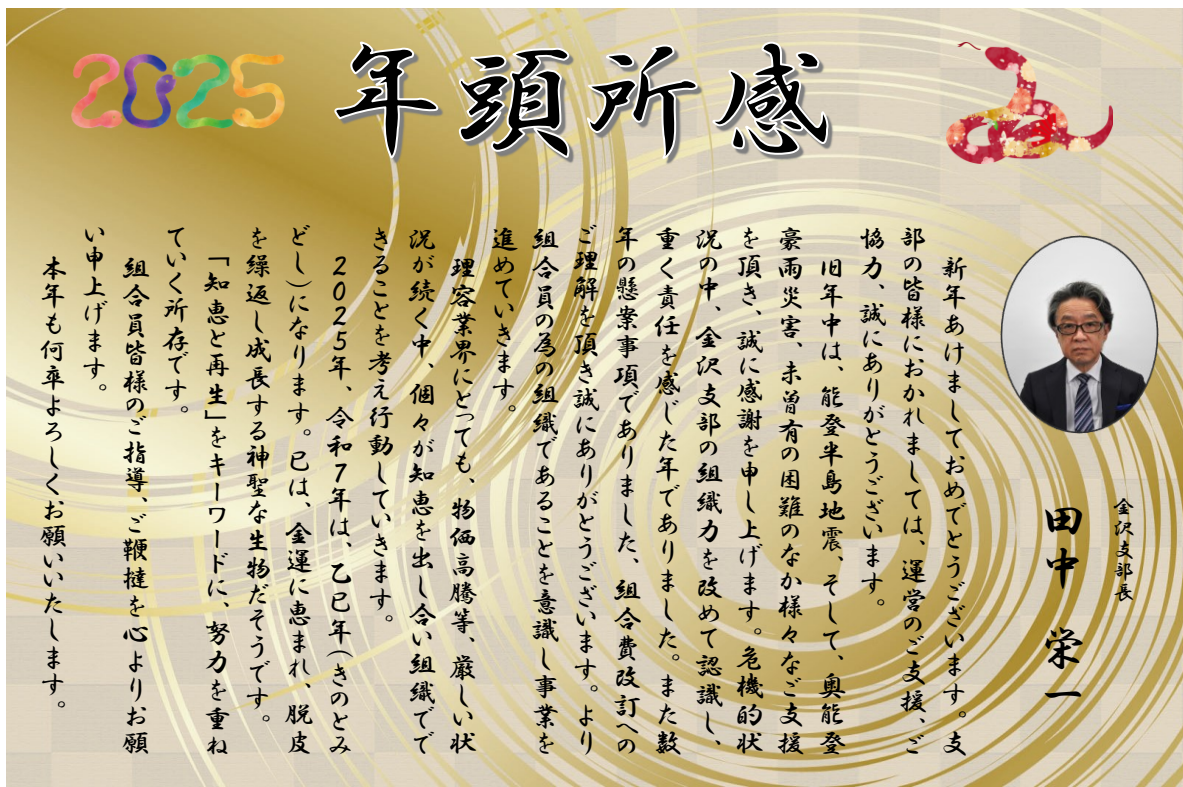 2025
年頭所感
金沢支部長
田中 栄一
新年あけましておめでとうございます。支
部の皆様におかれましては、運営のご支援、ご
協力、誠にありがとうございます。
旧年中は、能登半島地震、そして、奥能登
豪雨災害、未曽有の困難のなか様々なご支援
を頂き、誠に感謝を申し上げます。危機的状
況の中、金沢支部の組織力を改めて認識し、
重く責任を感じた年でありました。また数
年の懸案事項でありました、組合費改訂への
ご理解を頂き誠にありがとうございます。より
組合員の為の組織であることを意識し事業を
進めていきます。
理容業界にとっても、物価高騰等、厳しい状
況が続く中、個々が知恵を出し合い組織でで
きることを考え行動していきます。
2025年、令和7年は、乙巳年(きのとみ
どし)になります。巳は、金運に恵まれ、脱皮
を繰返し成長する神聖な生物だそうです。
「知恵と再生」をキーワードに、努力を重ね
ていく所存です。
組合員皆様のご指導、ご鞭撻を心よりお願
い申上げます。
本年も何卒よろしくお願いいたします。